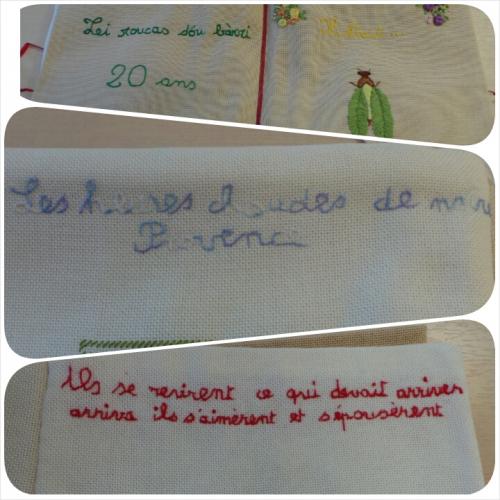 Lei roucas dóu bàrri
20 ans
Il était ...
Les heures chaudes de notre
Provence
Ils se revirent ce qui devait arriver
arriva ils s'aimèrent et s'épousèrent